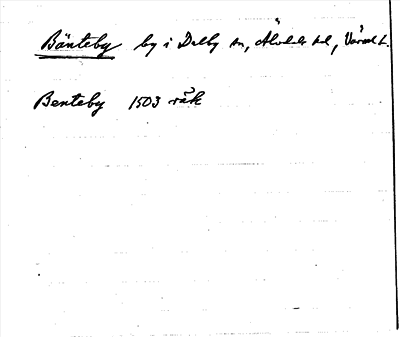 Bänteby by i Dalby sn, Älvdals hd, Värml.
Benteby 1503 räk